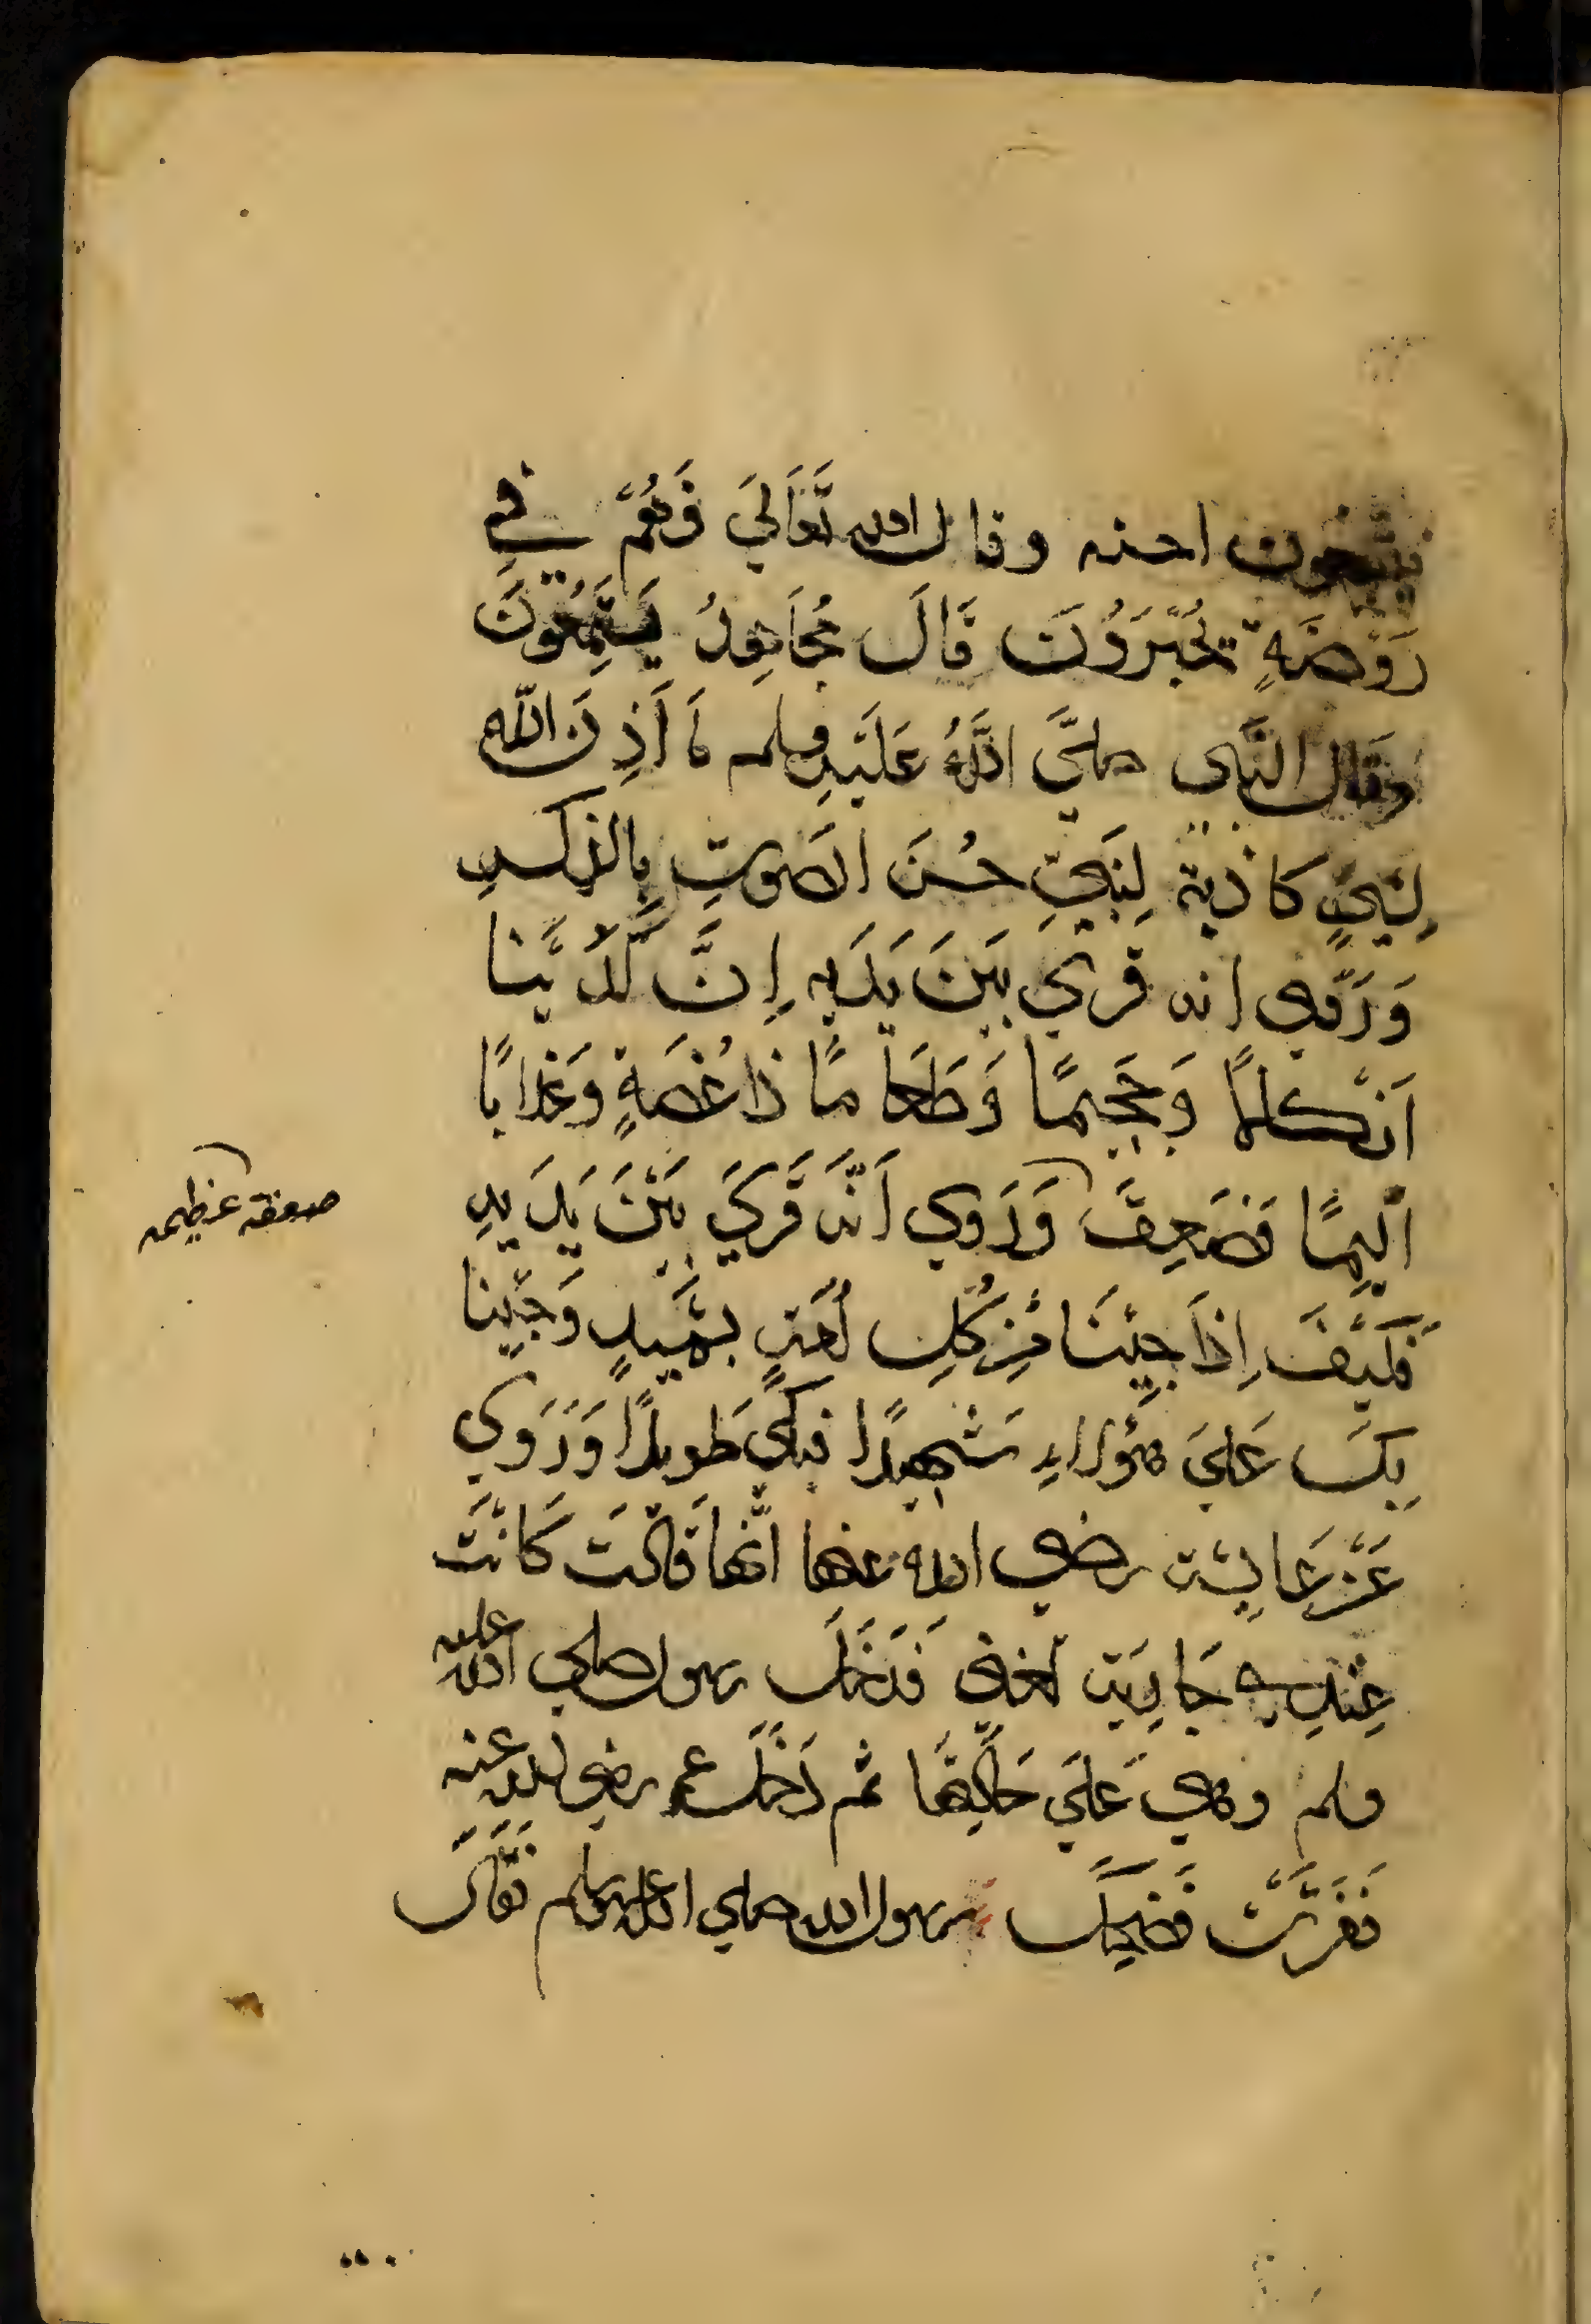 فيتبعون احسنه وقال الله تَعَالَى فَهُمْ في
رَوْضَةٍ يُحْبَرُونَ قَالَ مُجَاهِدُ يَسْتَمِعُونَ
وقال النَّبِي صليَّ اللَّهُ عَلَيْهِ وسلم مَا أَذِنَ اللّه
لِشَيءٍ كاذنه لِنَبِيِّ حُسْنَ الصَوتِ بِالذِكرِ
وَرَوي انه قري بَيْنَ يَدَيه إِنَّ لَدَيْنا
اَنْكَالاً وَجَحِيمًا وَطَعَامًا ذا غُصَةٍ وَعَذابًا
الِيمًا فَصَعِقَ وَرَوي اَنَّه قَرِيَ بَيْنَ يَدَيهِ
فَكَيْفَ إِذَا جِيْنَا مْنِ كُلِ اُمَةٍ بشَهِيدٍ وَجَيْنا
بِكَ عَلىَ هؤلاءِ شَهِيدًا فبكي طَويلاً وَرَوي
عَنْ عَايشة رضي الله عنها انَّها قَالتَ كَانَتْ
عِنْدِي جَارِية تغني فَدَخَلَ رسول صلي الله عليه
وسلم وهي عَلَي حَالِهَا ثم دَخَلَ عمر رضي الله عنه
فَفَرَّتْ فَضَحِكَ رسول الله صلي الله عليه وسلم فَقَالَ
صعقه عظيمه